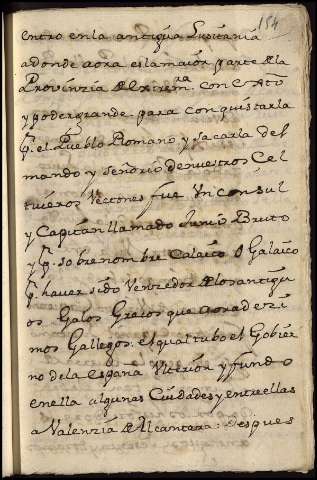 154
entro enla antigua Lusitania
adonde aora es la maior parte de la
Provinzia de Extrem.ra con exto
y poder grande para conquistarla
p.a el Pueblo Romano y sacarla del
mando y señorio de nuestros Cel
tiueros Vectones fue Un consul
y Capitan llamado Junio Bruto
y p.r sobrenombre Calaico o Galaico
p.r haver sido Venzedor de los antigu
os Galos Grecos que aora dezi
mos Gallegos: el qual tubo el Gobier
no de la España Vlterior y fundo
en ella algunas Ciudades y entre ellas
a Valenzia de Alcantara: despues